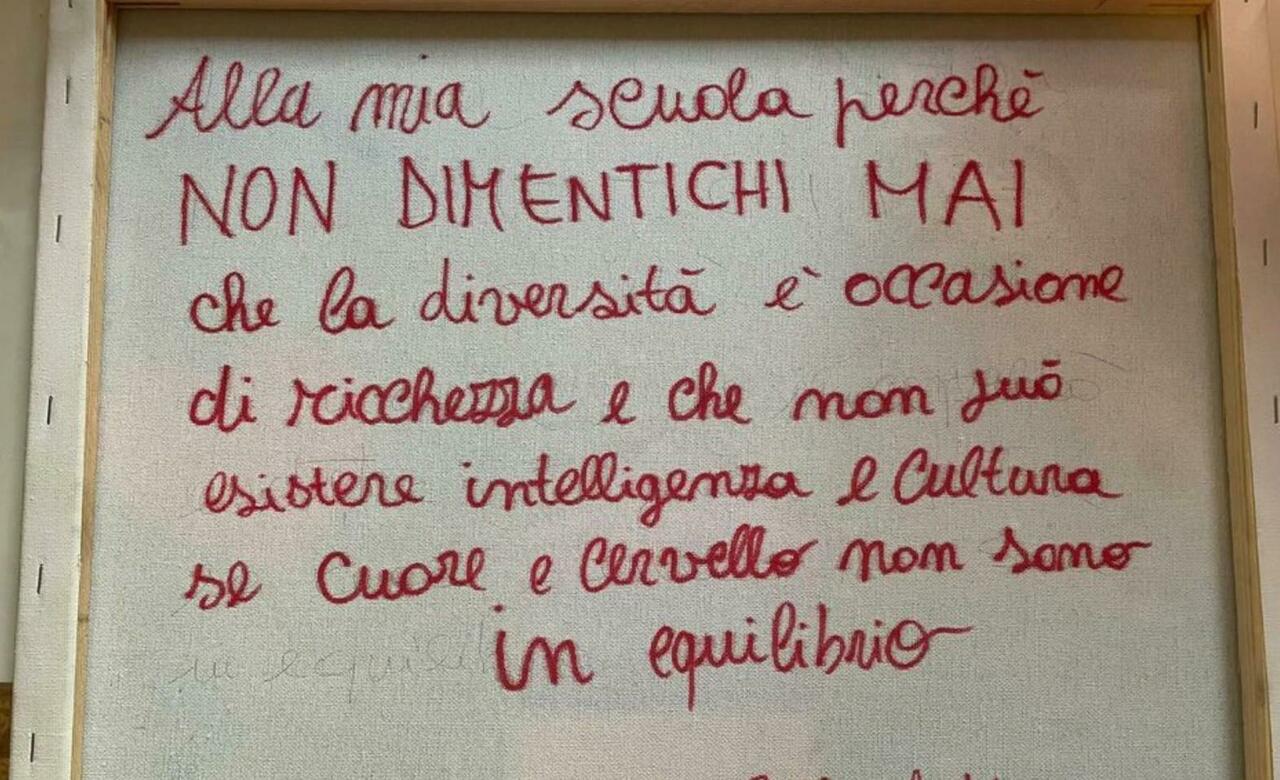 Alla mia scuola perchè
NON DIMENTICHI MAI
che la diversità è occasione
di ricchezza e che non può
esistere intelligenza e cultura
se cuore e cervello non sono
in equilibrio